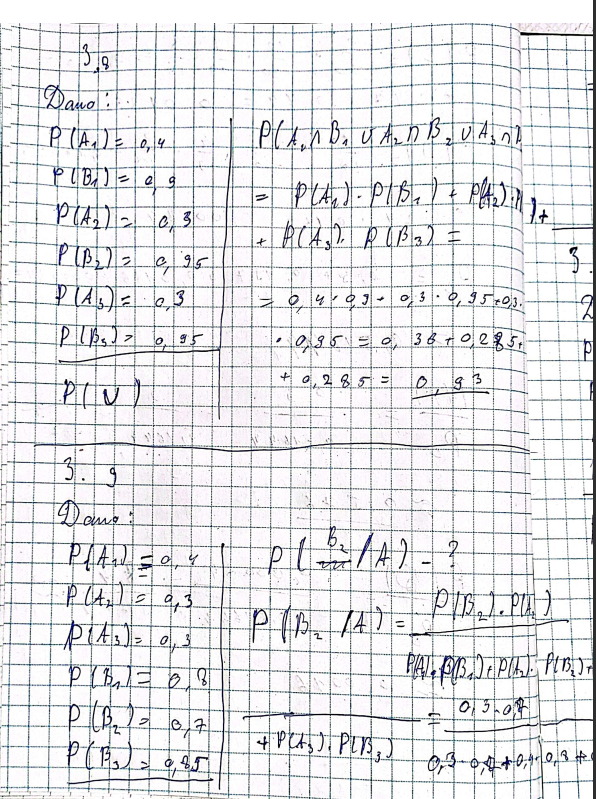 3.8
Дано:
P(A₁) = 0,4
P(B₁) = 0,9
P(A₂) = 0,3
P(B₂) = 0,95
P(A₃) = 0,3
P(B₃) = 0,95
P( ∪ )
P(A₁∩B₁ ∪ A₂∩B₂ ∪ A₃∩
= P(A₁)·P(B₁) + P(A₂)·
) +
+ P(A₃)·P(B₃) =
= 0,4·0,9 + 0,3·0,95 + 0,3·
·0,95 = 0,36 + 0,285 +
+ 0,285 = 0,93
3.
3.9
Дано:
P(A₁) = 0,4
P(A₂) = 0,3
P(A₃) = 0,3
P(B₁) = 0,8
P(B₂) = 0,7
P(B₃) = 0,85
P(B₂/A) - ?
P(B₂/A) = P(B₂)·P(A₂)
P(A₁)·P(B₁) + P(A₂)·P(B₂) +
+ P(A₃)·P(B₃)
= 0,3·0,7